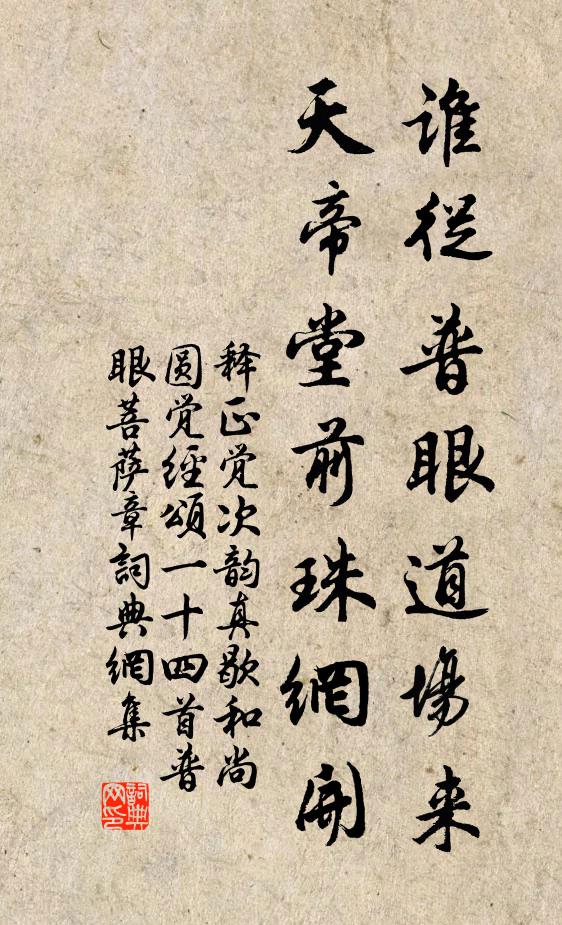 誰從普眼道場来
天帝堂前珠網開
释正覚次韵真歇和尚
圆覚經頌一十四首普
眼菩萨章詞典網集
詞典网印